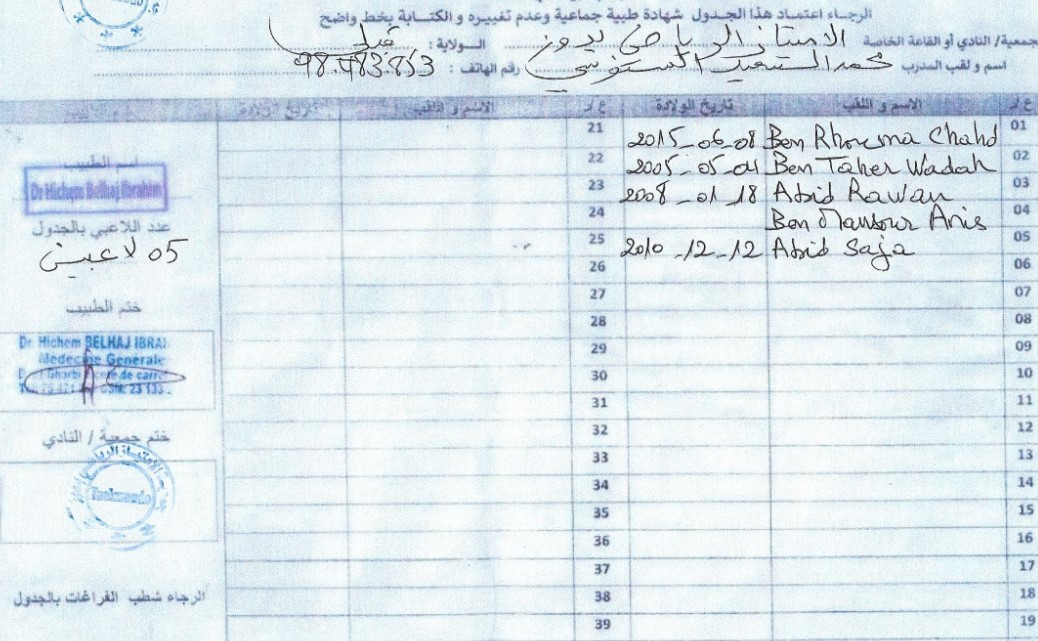 الرجاء اعتماد هذا الجدول شهادة طبية جماعية وعدم تغييره و الكتابة بخط واضح
جمعية/ النادي أو القاعة الخاصة الامتياز الرياضي بدوز الولاية : قبلي
اسم و لقب المدرب محمد السعيد رقم الهاتف : 98.483.853
ع/ر الاسم و اللقب تاريخ الولادة ع/ر الاسم و اللقب تاريخ الولادة
01 Ben Rhouma Chahd 2015-06-08 21
02 Ben Taher Wadah 2005-05-01 22
03 Abid Rawan 2008-01-18 23
04 Ben Mansour Anis 24
05 Abid Saja 2010-12-12 25
06 26
07 27
08 28
09 29
10 30
11 31
12 32
13 33
14 34
15 35
16 36
17 37
18 38
19 39
اسم الطبيب
Dr Hichem Belhaj Ibrahim
عدد اللاعبي بالجدول
05 لاعبين
ختم الطبيب
Dr. Hichem BELHAJ IBRA
Médecine Générale
ختم جمعية / النادي
Taekwondo
الرجاء شطب الفراغات بالجدول